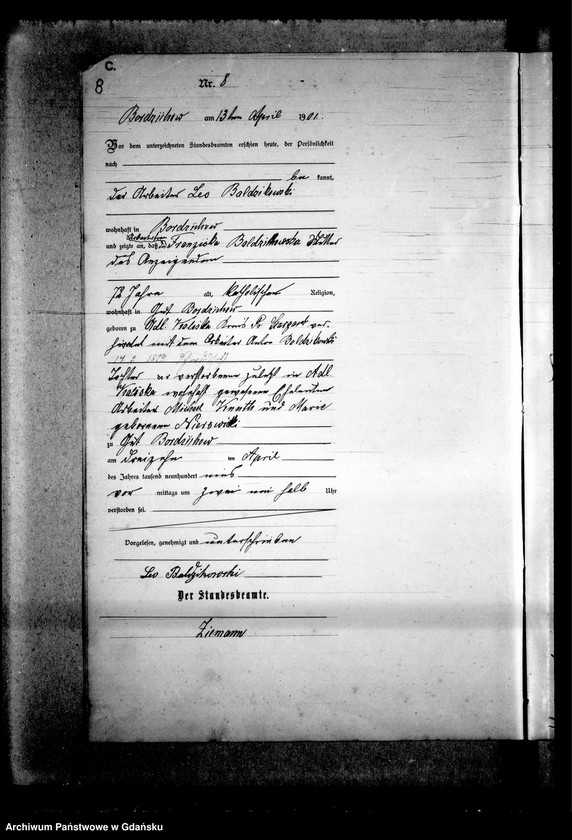 C.
8
Nr. 8
Bordzichow am 13ten April 1901.
Vor dem unterzeichneten Standesbeamten erschien heute, der Persönlichkeit
nach
be kannt,
der Arbeiter Leo Baldzikowski
wohnhaft in Bordzichow
und zeigte an, daß Franziska Baldzikowska Mutter
des Anzeigenden
72 Jahre alt, katholischer Religion,
wohnhaft in Gut Bordzichow
geboren zu Adl. Kreis Pr. Stargard ver-
heiratet mit dem Arbeiter Anton Baldzikowski
Tochter der verstorbenen zuletzt in Adl.
wohnhaft gewesenen Eheleuten
Arbeiter Michael und Marie
geborenen
zu Gut Bordzichow
am dreizehn ten April
des Jahres tausend neunhundert eins
vor mittags um zwei ein halb Uhr
verstorben sei.
Vorgelesen, genehmigt und unterschrieben
Leo Baldzikowski
Der Standesbeamte.
Ziemann
Archiwum Państwowe w Gdańsku